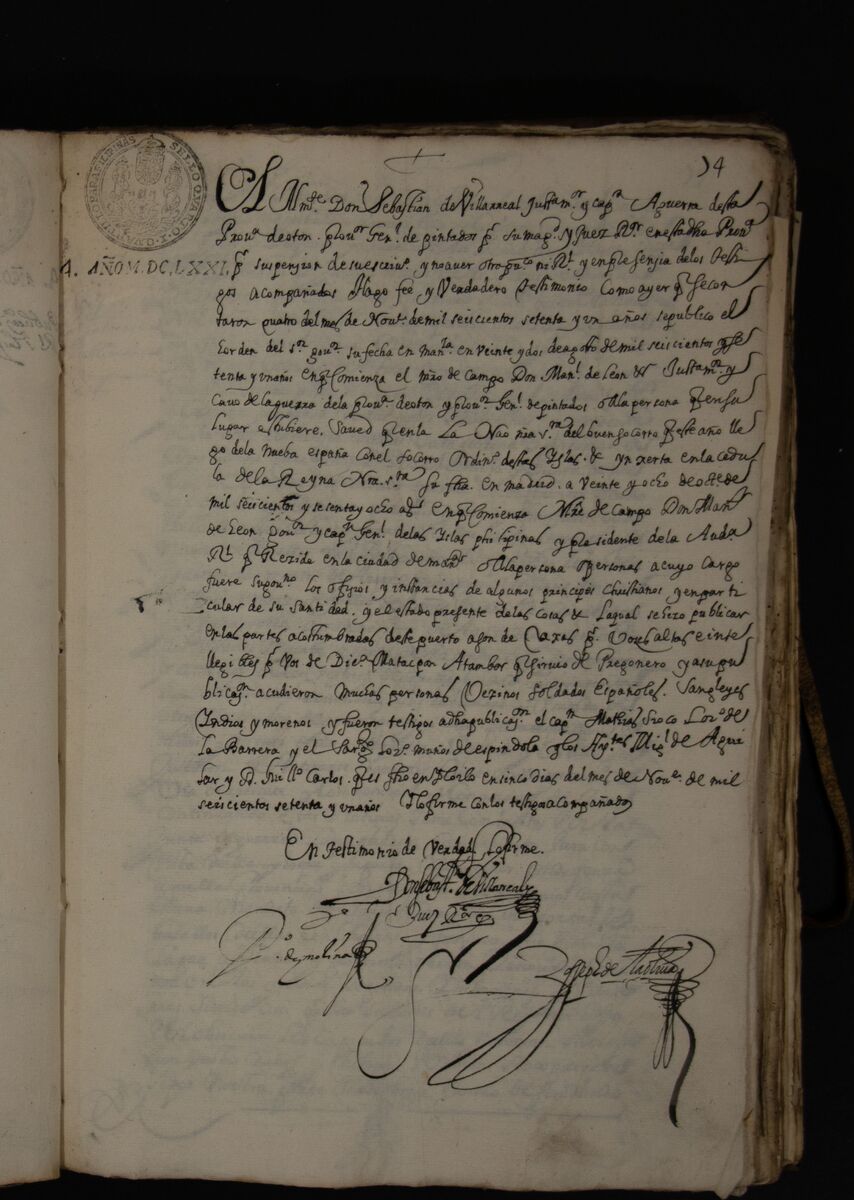 14
SELLO QVARTO
4. AÑO M.DC.LXXI.
El Alm.te Don Sebastian de Villarreal Justa m.r y cap.n Aguerra desta
Prou.a de oton. prou.or Gen.l de pintados p.r su mag.d y Juez R.or en esta dha Prou.a
p.r suspension de su escriu.o y no auer otro pu.co ni R.l y en presensia de los testi
gos acompañados Hago fee y Verdadero testimonio Como ayer q se con
taron quatro del mes de Nou.e de mil seiscientos setenta y vn años se publico el
el orden del s.or gou.or su fecha en man.la en veinte y dos de agosto de mil seiscientos y se
tenta y vn años en q Comienza el mro de campo Don Man.l de Leon &a Justa m.r y
cauo de la guerra de la prou.a de oton y prou.or Gen.l de pintados o a la persona q en su
lugar estubiere. Saued q en la La Nao nra s.ra del buen socorro q este año lle
go de la nueba españa con el socorro ordin.o destas Yslas. &a ynxerta en la cedu
la de la Reyna Nra. s.ra su fha. en madrid a veinte y ocho de oct.e de
mil seiscientos y sesenta y ocho a.s en q Comienza Mro de Campo Don Man.l
de Leon gou.or y cap.n Gen.l de las Yslas philipinas y presidente de la Aud.a
R.l q Rezide en la ciudad de man.la o a la persona o personas a cuyo cargo
fuere su gou.no Los ofizios y instancias de algunos principes christianos y en parti
cular de su santidad. y el estado presente de las cosas &a Laqual se hizo publicar
en las partes acostumbradas deste puerto a son de Caxas p.r Voses altas e inte
llegibles p.r Vos de Die.o Matacpan Atambor q siruio de Pregonero y a su pu
blicaz.on acudieron muchas personas Vezinos soldados Españoles. Sangleyes
Yndios y morenos y fueron testigos a dha publicaz.on el cap.n Mathias Sioco Loz.o de
La Barrera y el Sarg.to Loz.o muños de espindola y los Ay.tes Mig.l de Agui
lar y Guill.o Carlos. q es fho en Yloilo en sinco dias del mes de Nou.e de mil
seiscientos setenta y vn años Y lo firme con los testigos acompañados
En testimonio de Verdad Lo firme.
Don sebast.n de Villarreal
Juez R.or
P.o de molina
Joseph de Medina